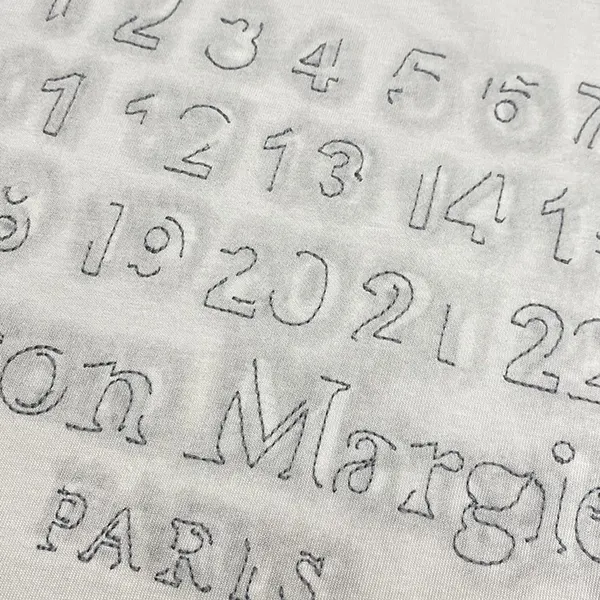 1 2 3 4 5 6 7
1 12 13 14 1
9 19 20 21 22
on Margie
PARIS